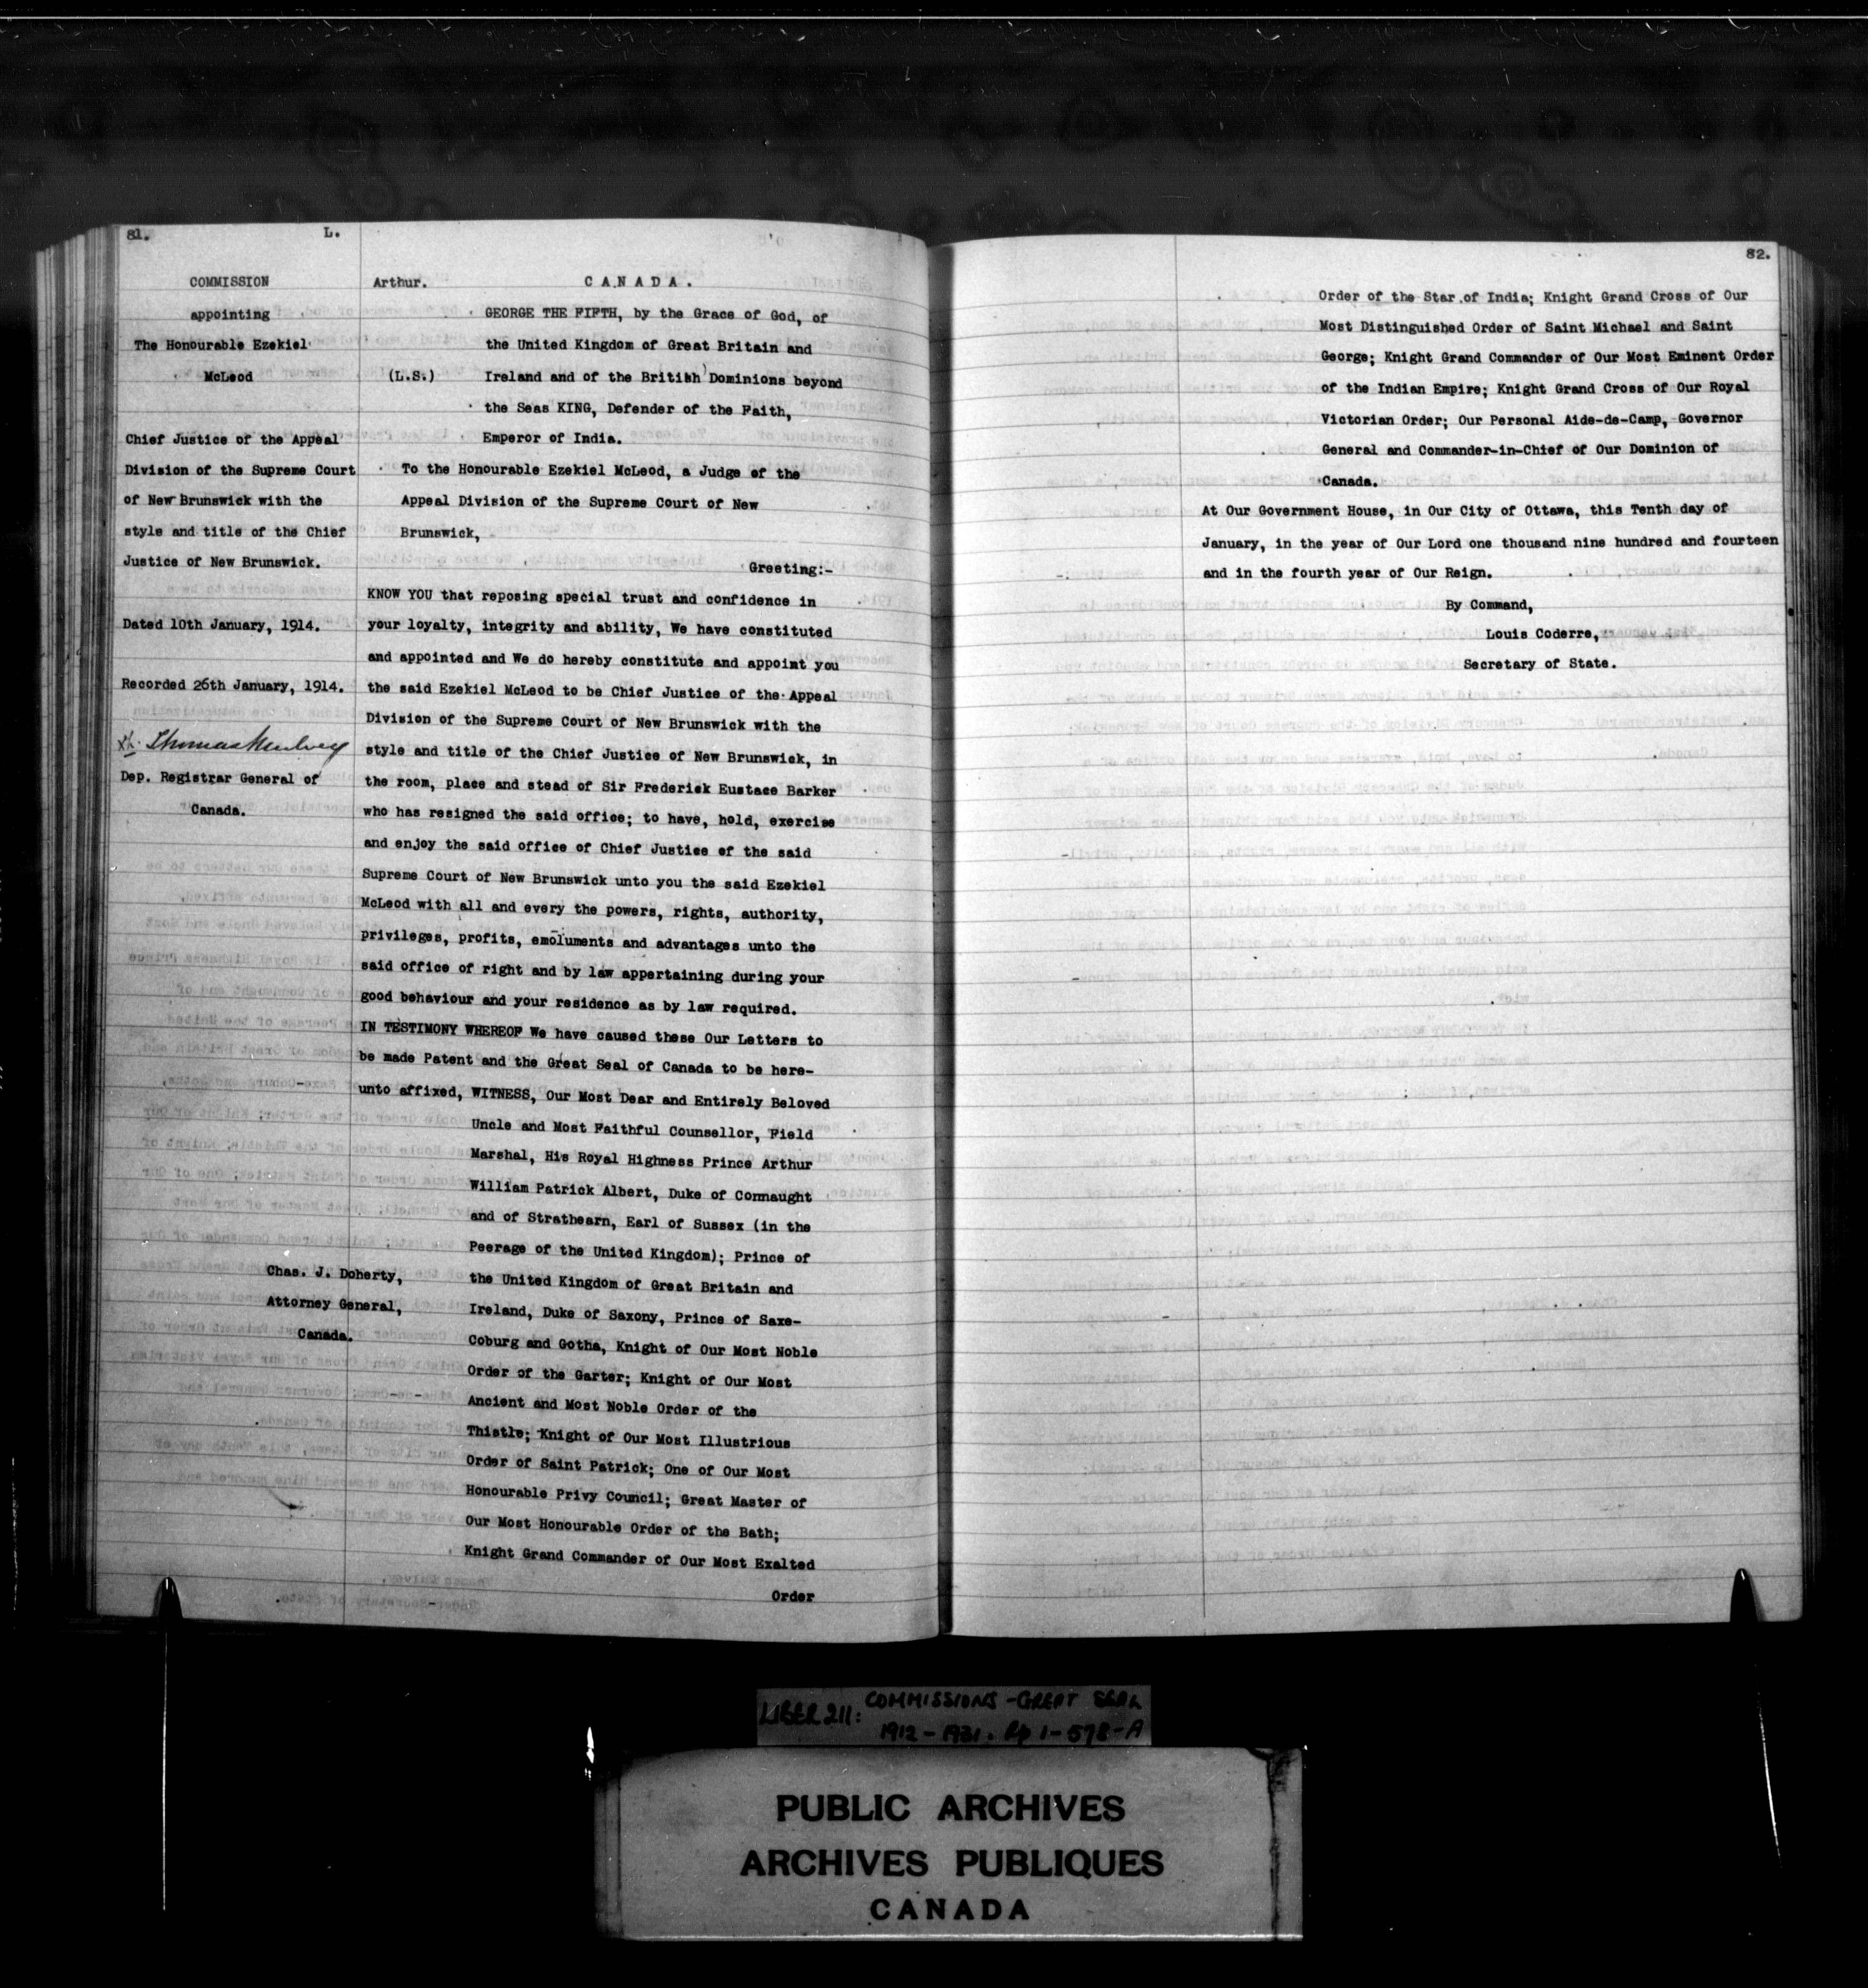 81. L.
COMMISSION
appointing
The Honourable Ezekiel
McLeod
Chief Justice of the Appeal
Division of the Supreme Court
of New Brunswick with the
style and title of the Chief
Justice of New Brunswick.
Dated 10th January, 1914.
Recorded 26th January, 1914.
Thomas Mulvey
Dep. Registrar General of
Canada.
Chas. J. Doherty,
Attorney General,
Canada.
Arthur. CANADA.
GEORGE THE FIFTH, by the Grace of God, of
the United Kingdom of Great Britain and
(L.S.) Ireland and of the British Dominions beyond
the Seas KING, Defender of the Faith,
Emperor of India.
To the Honourable Ezekiel McLeod, a Judge of the
Appeal Division of the Supreme Court of New
Brunswick,
Greeting:-
KNOW YOU that reposing special trust and confidence in
your loyalty, integrity and ability, We have constituted
and appointed and We do hereby constitute and appoint you
the said Ezekiel McLeod to be Chief Justice of the Appeal
Division of the Supreme Court of New Brunswick with the
style and title of the Chief Justice of New Brunswick, in
the room, place and stead of Sir Frederick Eustace Barker
who has resigned the said office; to have, hold, exercise
and enjoy the said office of Chief Justice of the said
Supreme Court of New Brunswick unto you the said Ezekiel
McLeod with all and every the powers, rights, authority,
privileges, profits, emoluments and advantages unto the
said office of right and by law appertaining during your
good behaviour and your residence as by law required.
IN TESTIMONY WHEREOF We have caused these Our Letters to
be made Patent and the Great Seal of Canada to be here-
unto affixed, WITNESS, Our Most Dear and Entirely Beloved
Uncle and Most Faithful Counsellor, Field
Marshal, His Royal Highness Prince Arthur
William Patrick Albert, Duke of Connaught
and of Strathearn, Earl of Sussex (in the
Peerage of the United Kingdom); Prince of
the United Kingdom of Great Britain and
Ireland, Duke of Saxony, Prince of Saxe-
Coburg and Gotha, Knight of Our Most Noble
Order of the Garter; Knight of Our Most
Ancient and Most Noble Order of the
Thistle; Knight of Our Most Illustrious
Order of Saint Patrick; One of Our Most
Honourable Privy Council; Great Master of
Our Most Honourable Order of the Bath;
Knight Grand Commander of Our Most Exalted
Order
82.
Order of the Star of India; Knight Grand Cross of Our
Most Distinguished Order of Saint Michael and Saint
George; Knight Grand Commander of Our Most Eminent Order
of the Indian Empire; Knight Grand Cross of Our Royal
Victorian Order; Our Personal Aide-de-Camp, Governor
General and Commander-in-Chief of Our Dominion of
Canada.
At Our Government House, in Our City of Ottawa, this Tenth day of
January, in the year of Our Lord one thousand nine hundred and fourteen
and in the fourth year of Our Reign.
By Command,
Louis Coderre,
Secretary of State.
LIBER 211: COMMISSIONS - GREAT SEAL
1912 - 1931. Pp 1-578-A
PUBLIC ARCHIVES
ARCHIVES PUBLIQUES
CANADA